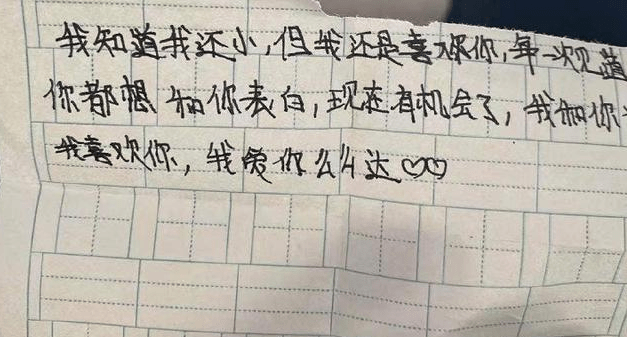 我知道我还小,但我还是喜欢你,每一次见道
你都想和你表白,现在有机会了,我和你
我喜欢你,我爱你么么达♡♡